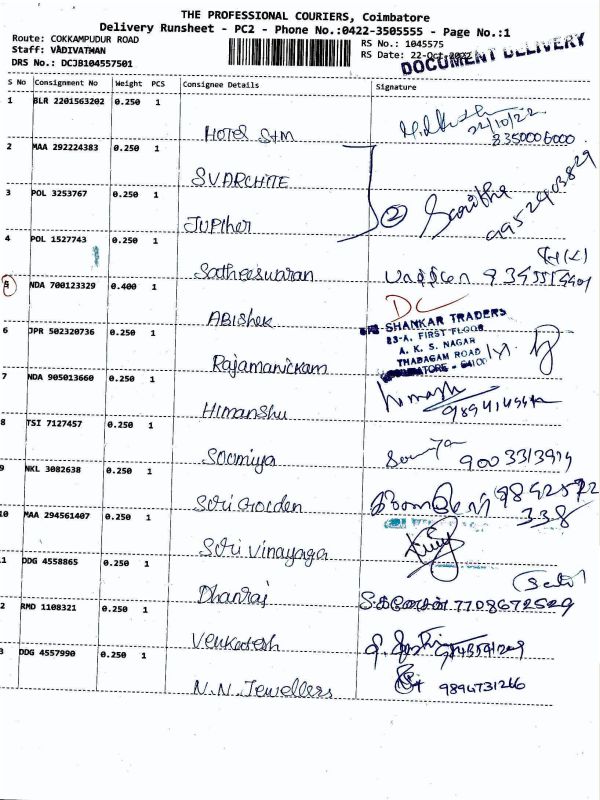 THE PROFESSIONAL COURIERS, Coimbatore
Delivery Runsheet - PC2 - Phone No.:0422-3505555 - Page No.:1
Route: COKKAMPUDUR ROAD
Staff: VADIVATHAN
DRS No.: DCJB104557501
RS No.: 1045575
RS Date: 22-Oct-2022
DOCUMENT DELIVERY
S No Consignment No Weight PCS Consignee Details Signature
1 BLR 2201563202 0.250 1
Hotel S+M 22/10/22
8350006000
2 MAA 292224383 0.250 1
SVARCHITE
3 POL 3253767 0.250 1
Jupiher 2 9952903829
4 POL 1527743 0.250 1
Satheeswaran
5 NDA 700123329 0.400 1
Abishek DC
SRI SHANKAR TRADERS
23-A, FIRST FLOOR
A. K. S. NAGAR
THADAGAM ROAD
6 JPR 502320736 0.250 1
Rajamanickam
7 NDA 905013660 0.250 1
Himanshu
8 TSI 7127457 0.250 1
Soomiya Soumya 9003313919
9 NKL 3082638 0.250 1
Sri Golden 9842572
338
10 MAA 294561407 0.250 1
Sri Vinayaga
1 DDG 4558865 0.250 1
Dhanraj 7708672529
2 RMD 1108321 0.250 1
Venkatesh
3 DDG 4557990 0.250 1
N.N. Jewellers 9894731266